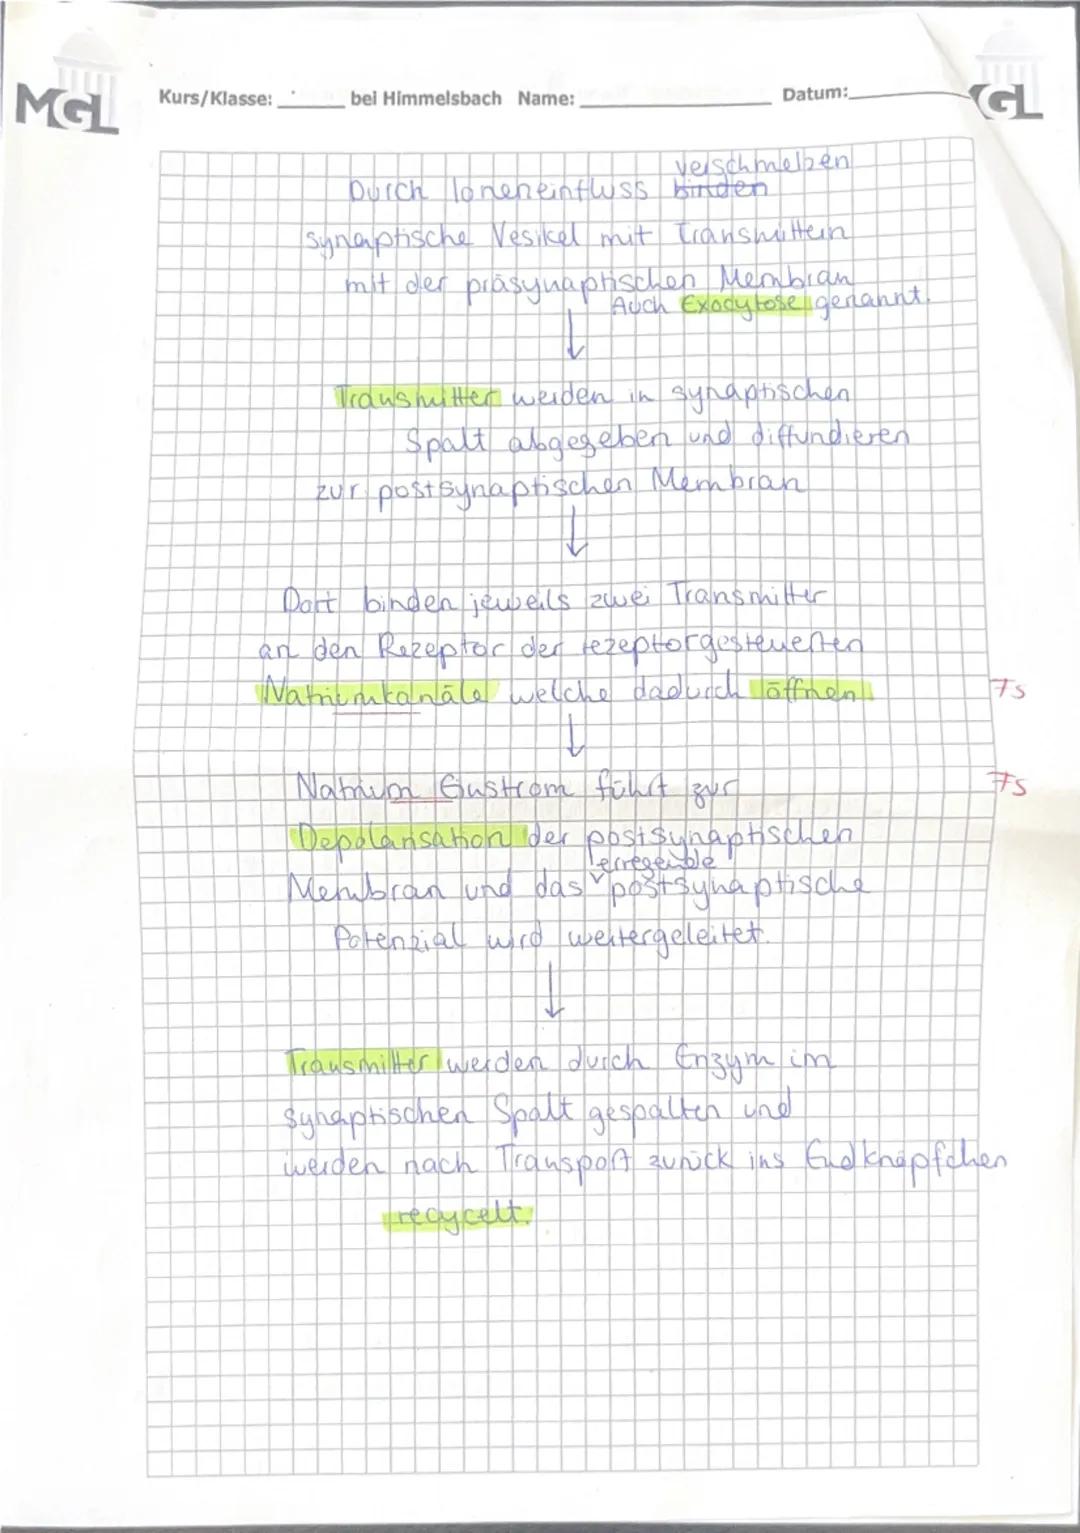 MGL
Kurs/Klasse: ____ bei Himmelsbach Name: ____ Datum: ____
GL
verschmelzen
Durch Ioneneinfluss binden
synaptische Vesikel mit Transmittern
mit der präsynaptischen Membran
Auch Exocytose genannt.
↓
Transmitter werden in synaptischen
Spalt abgegeben und diffundieren
zur postsynaptischen Membran
↓
Dort binden jeweils zwei Transmitter
an den Rezeptor der rezeptorgesteuerten
Natriumkanäle welche dadurch öffnen
↓
Natrium Einstrom führt zur
Depolarisation der postsynaptischen
erregende
Membran und das postsynaptische
Potenzial wird weitergeleitet.
↓
Transmitter werden durch Enzym im
synaptischen Spalt gespalten und
werden nach Transport zurück ins Endknöpfchen
recycelt.